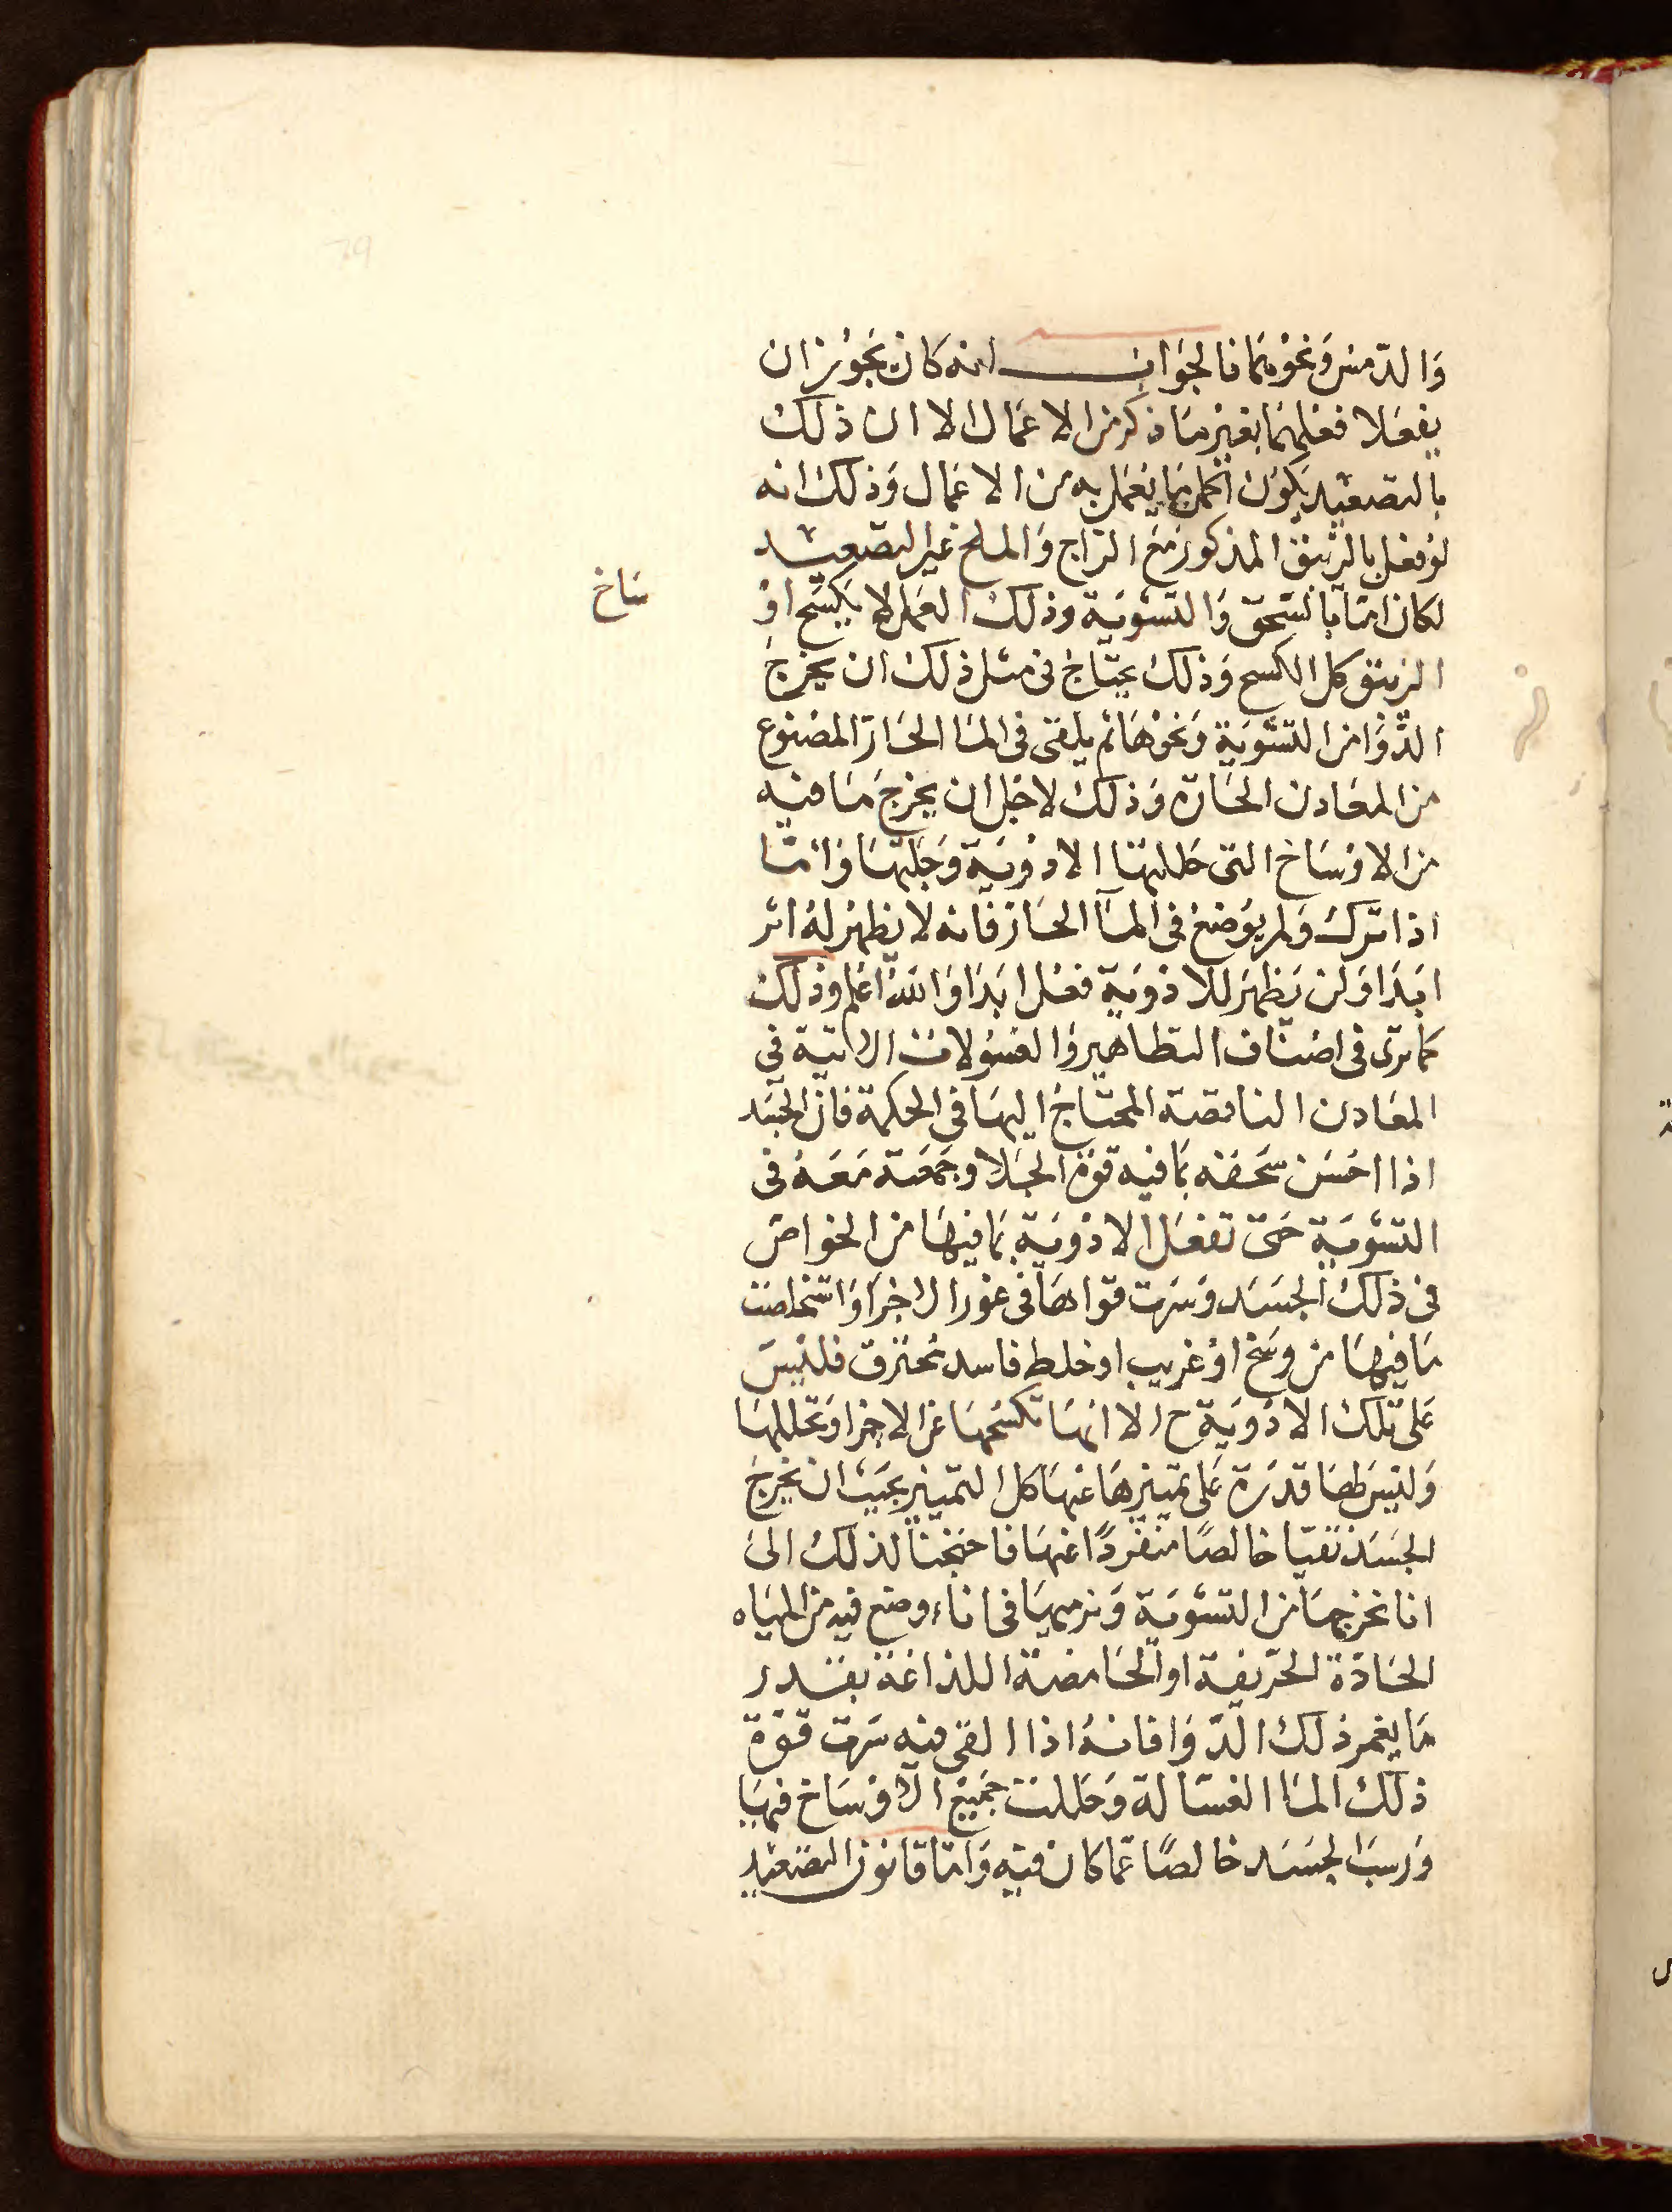 وَالدّمس وَنحوهمَا فالجوَاب انه كان يجوز ان
يفعَلا فعلهمَا بغير مَا ذكر من الاعمال الا ان ذلك
بالتصعيد يكون اكمل مما يعمل به من الاعمال وَذلك انه
لو فعل بالزيبق المذكور مَع الزاج وَالملح غير التصعيد
لكان امّا بالسّحق وَالتسْويَة وذلك العمل لا يكسَح اوْ
سَاخ
الزيبق كل الكسح وَذلك يحتاج فى مثل ذلك ان يخرج
الدّوَا من التسْويَة وَنحوْهَا ثم يلقى فى المَا الحَارّ المصْنوع
من المعَادن الحَارّة وَذلك لاجْل ان يخرجَ مَا فيْه
من الاوْسَاخ التى حَللتهَا الادْويَة وَجَلتهَا وَامّا
اذا ترك وَلم يوْضع فى المآ الحَار فانه لا يظهرْ لهُ اثر
ابَدَا وَلن يَظهرَ للادْويَة فعْل ابَدَا وَاللهُ اعْلم وذلك
كما ترى فى اصْنَاف التطاهير وَالغسُولات الاتية فى
المعَادن الناقصَة المحتاجُ اليهَا فى الحكمة فانّ الجسَد
اذا احسَن سَحقه بمَا فيه قوة الجَلا وجمعَته مَعَهُ فى
التسْويَة حَتى تفعَل الادْويَة بمَا فيهَا من الخواصّ
فى ذلك الجسَد وَسَرت قوَاهَا فى غوْر الاجْزَا وَاستخلصَت
مَا فيهَا من وسَخ اوْ غريب او خلط فاسد محترق فلَيْسَ
عَلى تلك الادْويَة ح الا انهَا تكسَحهَا عن الاجزا وَتحللهَا
وَليْسَ لهَا قدرَة عَلى تمييزهَا عنهَا كل التمييز بحيَث ان يخرجَ
الجسَد نقيّا خالصًا منفردًا عنهَا فاحتجْنا لذلك الىَ
انا نخرجهَا من التسْويَة وَنرميهَا فى اناء وضع فيه من المِيَاه
الحَادّة الحرّيفة او الحَامضة اللذاعَة بقَدر
مَا يغمر ذلك الدّوَا فانهُ اذا القى فيه سَرت قوّة
ذلك المَا الغسّالة وَحَللت جَميْع الاوْسَاخ فيهَا
وَرسَب الجسَد خالصًا عمّا كان فيْه وَامّا قانون التصْعيْد